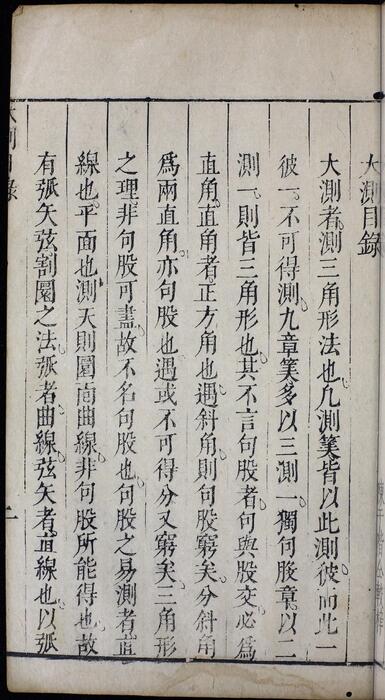 大測目錄
大測者測三角形法也凡測筭皆以此測彼而此一
彼一不可得測九章筭多以三測一獨句股章以二
測一則皆三角形也其不言句股者句與股交必爲
直角直角者正方角也遇斜角則句股窮矣分斜角
爲兩直角亦句股也遇或不可得分又窮矣三角形
之理非句股可盡故不名句股也句股之易測者直
線也平面也測天則圜面曲線非句股所能得也故
有弧矢弦割圜之法弧者曲線弦矢者直線也以弧
目錄
一